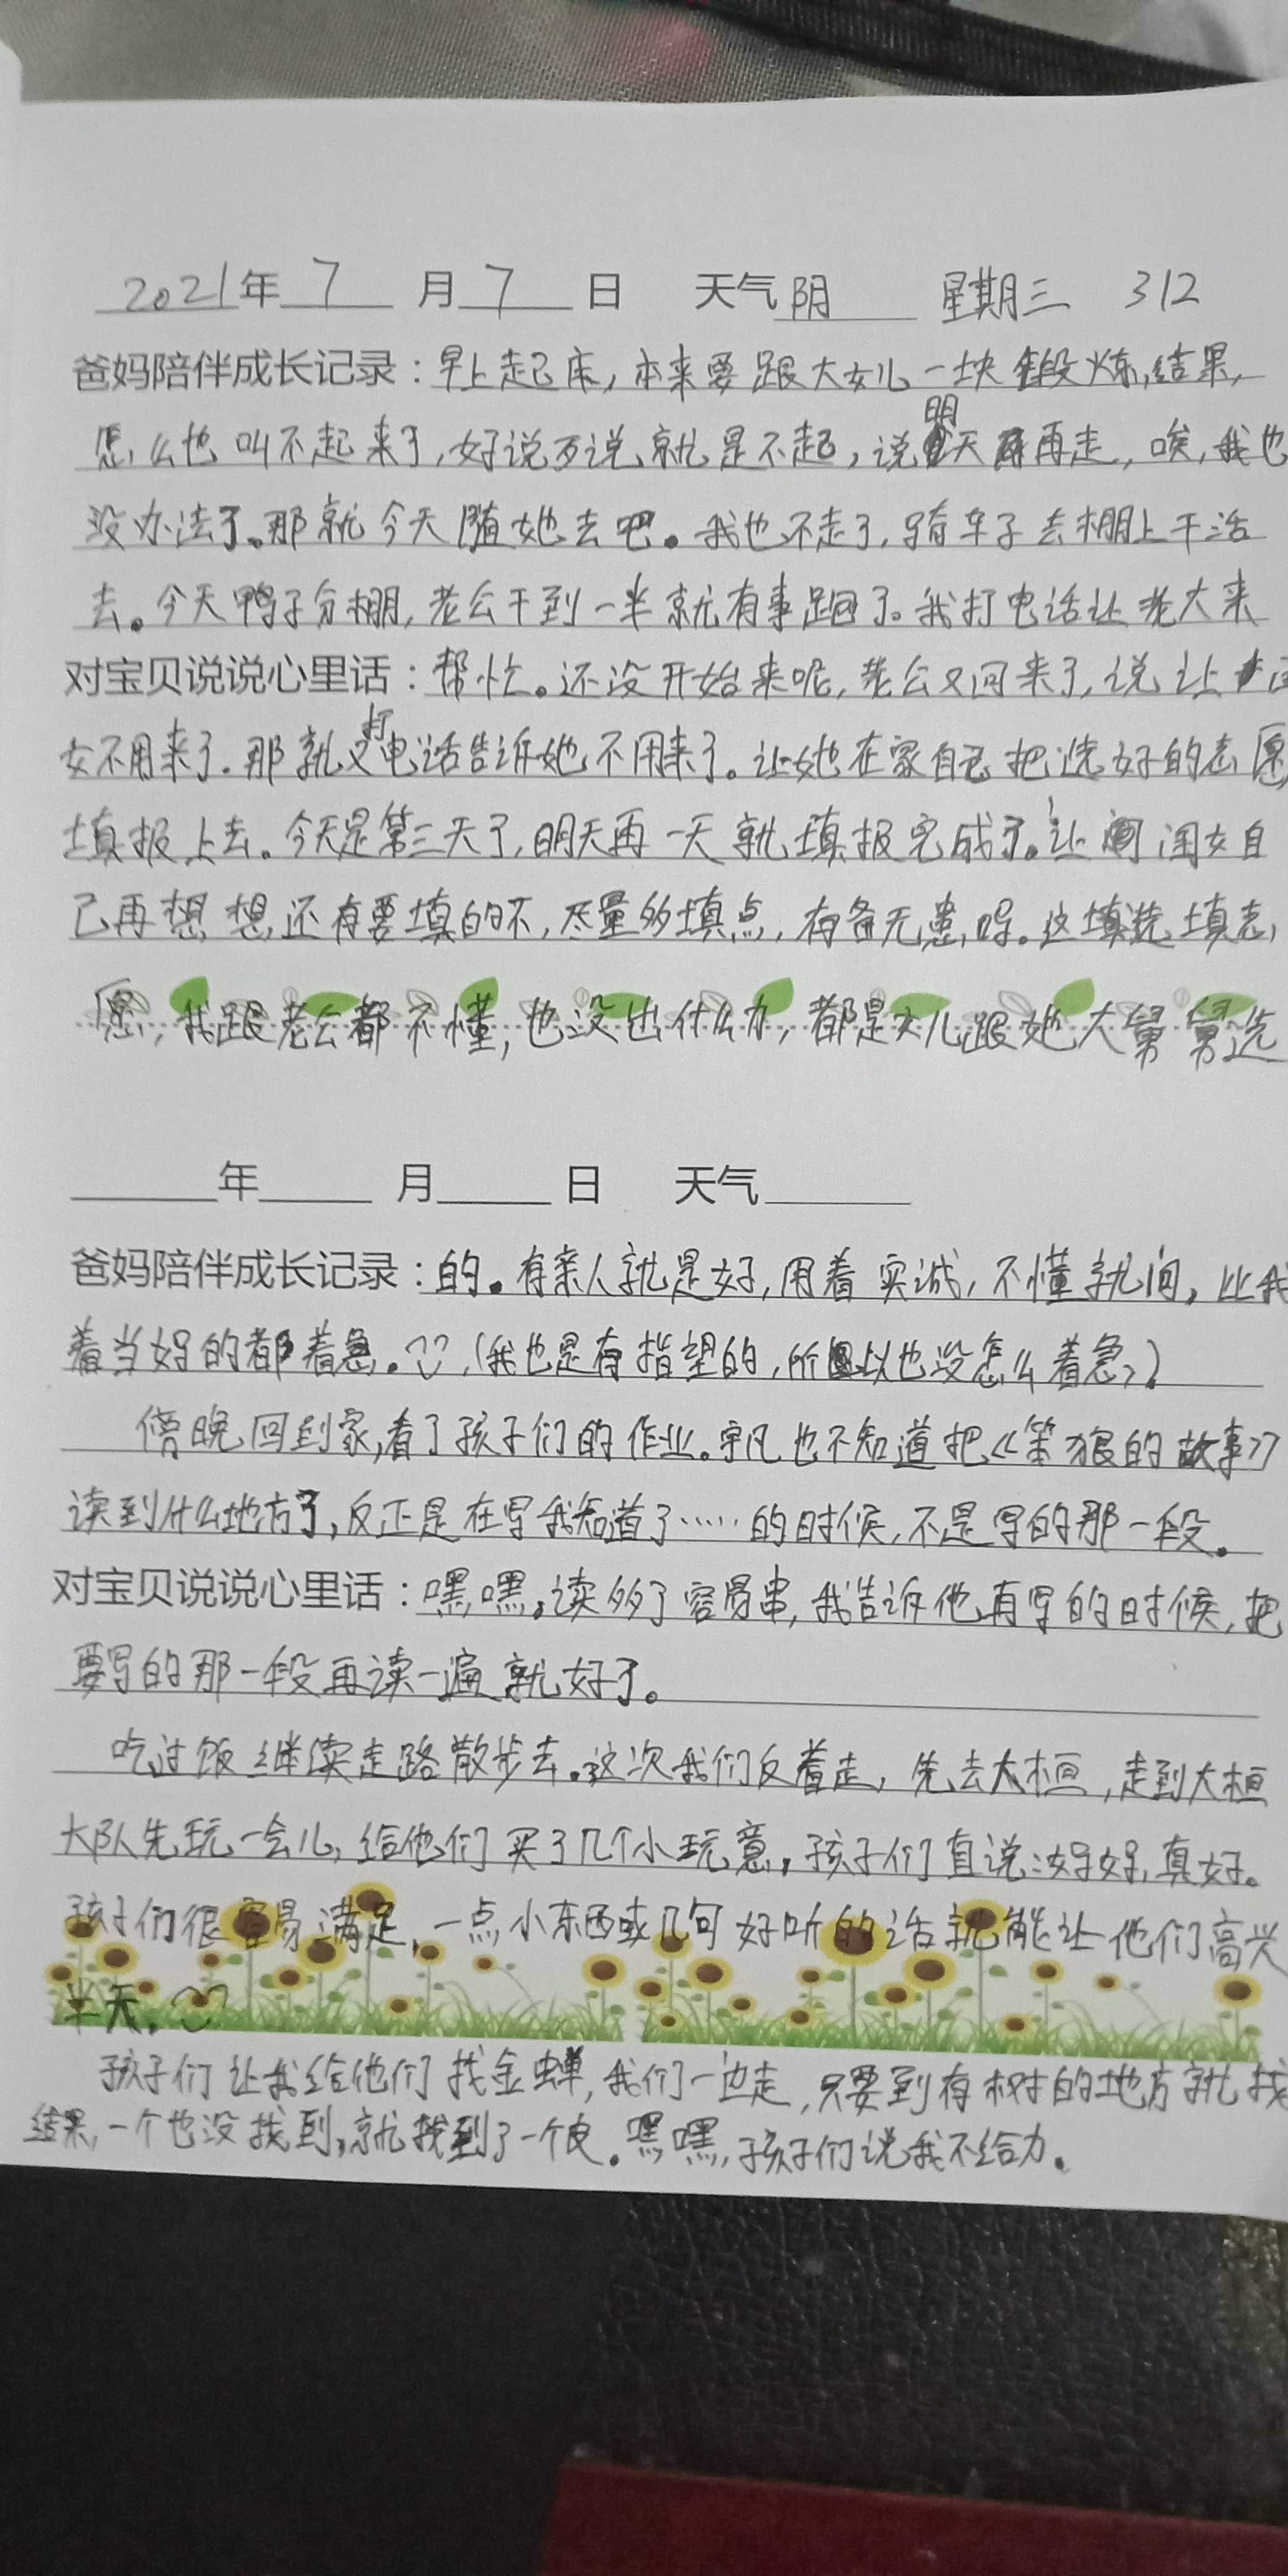 2021年 7 月 7 日 天气 阴 星期三 312
爸妈陪伴成长记录：早上起床，本来要跟大女儿一块锻炼，结果，
怎么也叫不起来了，好说歹说就是不起，说明天再走，唉，我也
没办法了。那就今天随她去吧。我也不走了，骑车子去棚上干活
去。今天鸭子分棚，老公干到一半就有事跑了。我打电话让老大来
对宝贝说说心里话：帮忙。还没开始来呢，老公又回来了，说让
女不用来了。那就又打电话告诉她不用来了。让她在家自己把选好的志愿
填报上去。今天是第三天了，明天再一天就填报完成了。让闺女自
己再想想还有要填的不，尽量多填点，有备无患吗。这填选填志
愿，我跟老公都不懂，也没出什么力，都是大儿跟她大舅舅选
年 月 日 天气
爸妈陪伴成长记录：的。有亲人就是好，用着实诚，不懂就问，比我
着当妈的都着急。(我也是有指望的，所以也没怎么着急，)
傍晚回到家，看了孩子们的作业。宇凡也不知道把《笨狼的故事》
读到什么地方了，反正是在写我知道了……的时候，不是写的那一段。
对宝贝说说心里话：嘿嘿，读多了容易串，我告诉他再写的时候，把
要写的那一段再读一遍就好了。
吃过饭继续走路散步去。这次我们反着走，先去大桓，走到大桓
大队先玩一会儿，给他们买了几个小玩意，孩子们直说：好好，真好。
孩子们很容易满足，一点小东西或几句好听的话就能让他们高兴
半天。
孩子们让我给他们找金蝉，我们一边走，只要到有树的地方就找
结果，一个也没找到，就找到了一个皮。嘿嘿，孩子们说我不给力。